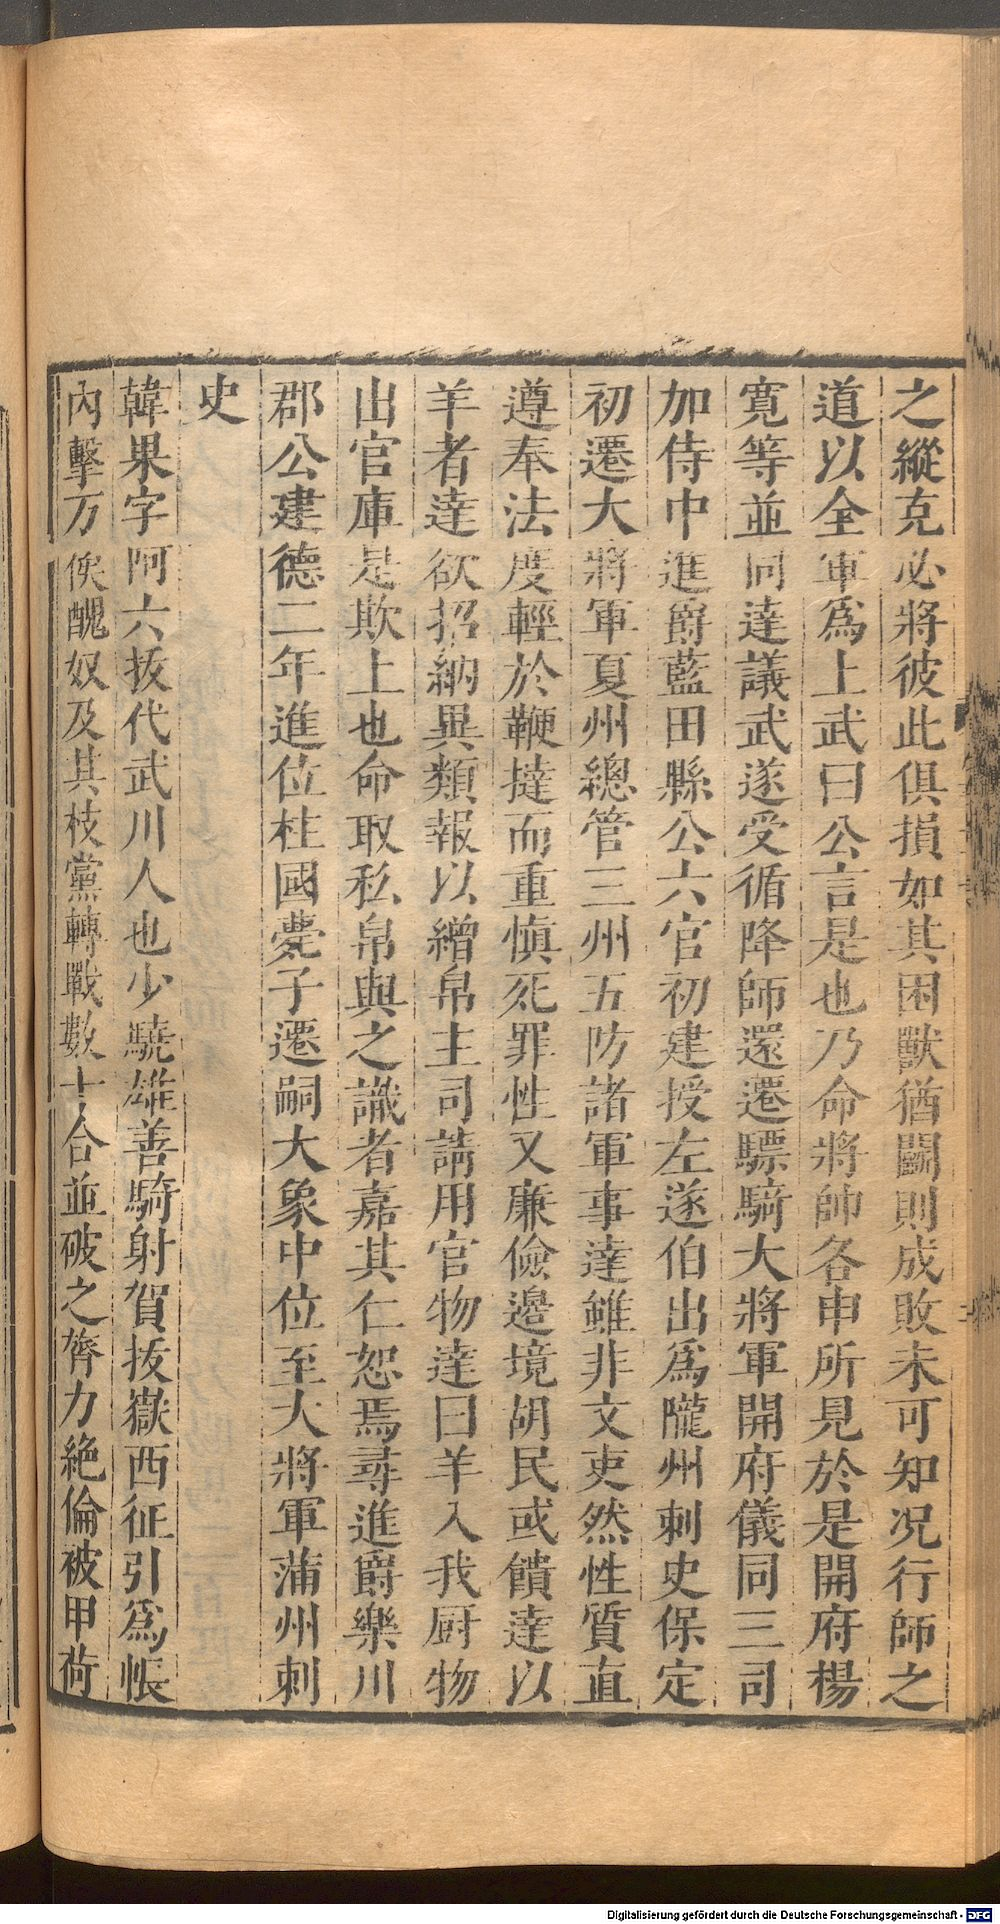 之縱克必將彼此俱損如其困獸猶鬭則成敗未可知况行師之
道以全軍爲上武曰公言是也乃命將帥各申所見於是開府楊
寛等並同達議武遂受循降師還遷驃騎大將軍開府儀同三司
加侍中進爵藍田縣公六官初建授左遂伯出爲隴州刺史保定
初遷大將軍夏州總管三州五防諸軍事達雖非文吏然性質直
遵奉法度輕於鞭撻而重慎死罪性又廉儉邊境胡民或饋達以
羊者達欲招納異類報以繒帛主司請用官物達曰羊入我厨物
出官庫是欺上也命取私帛與之識者嘉其仁恕焉尋進爵樂川
郡公建德二年進位柱國薨子遷嗣大象中位至大將軍蒲州刺
史
韓果字阿六拔代武川人也少驍雄善騎射賀拔嶽西征引爲帳
內擊万俟醜奴及其枝黨轉戰數十合並破之膂力絶倫被甲荷
Digitalisierung gefördert durch die Deutsche Forschungsgemeinschaft - DFG